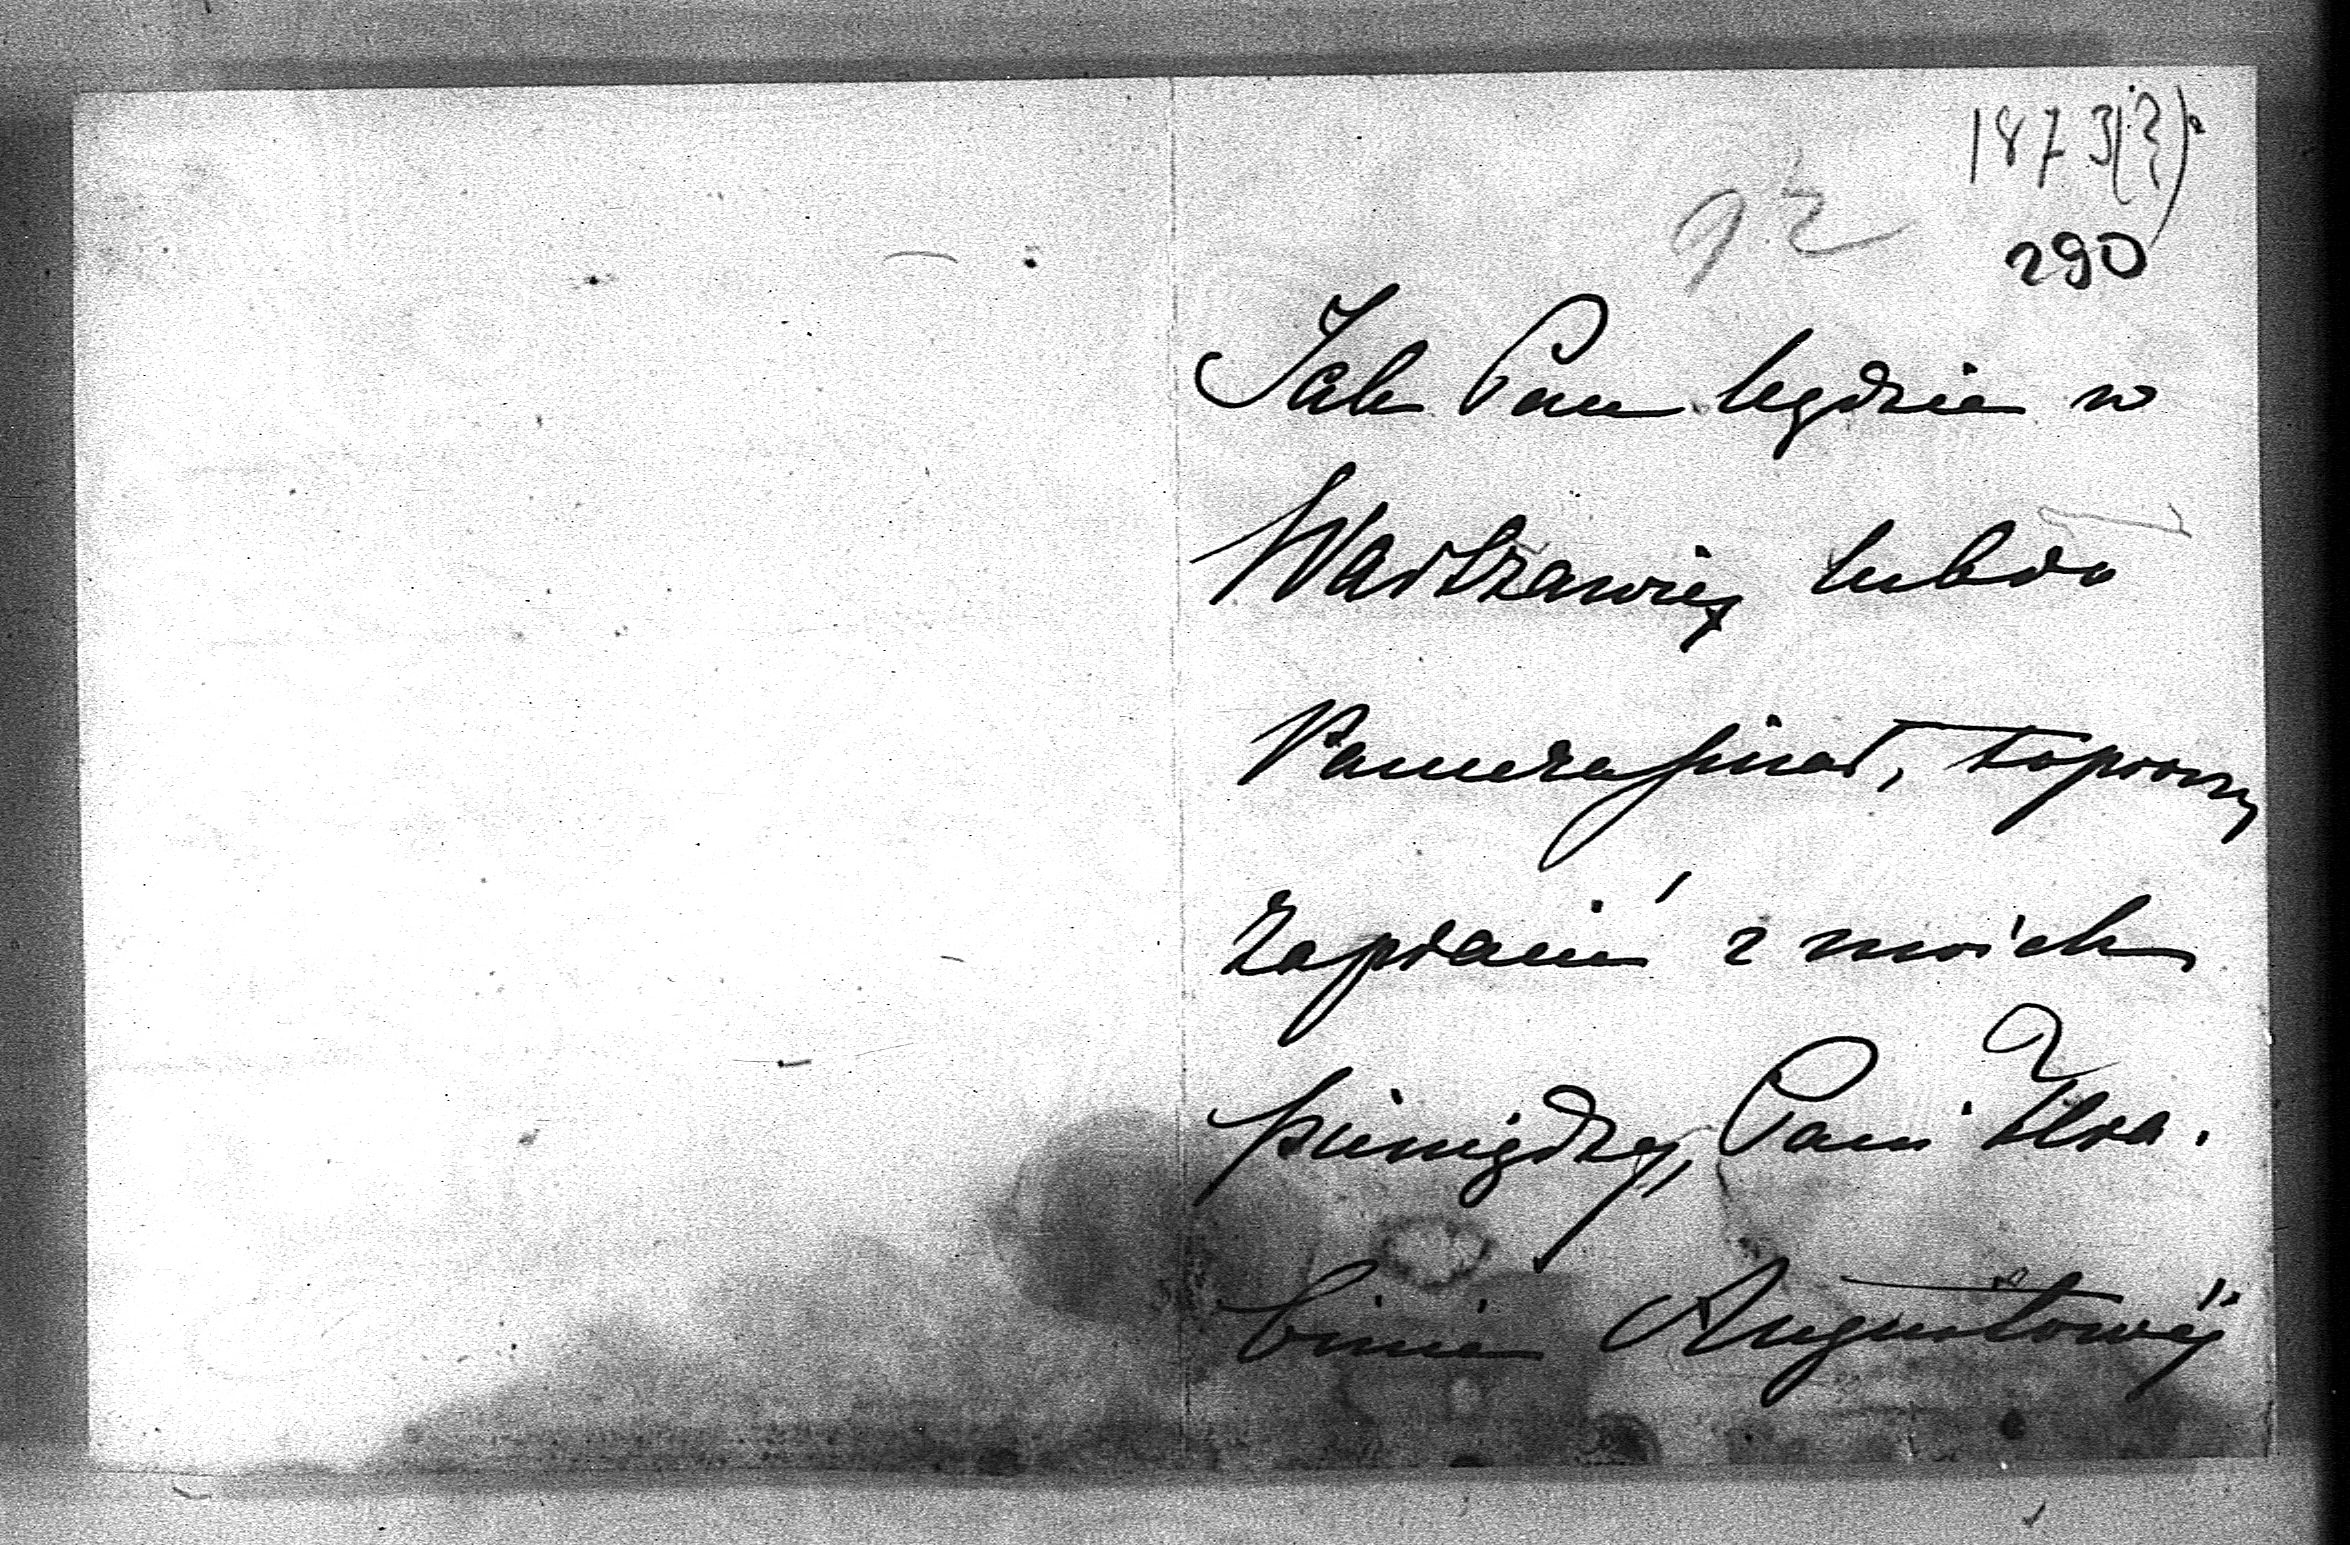 1873(?).
92
290
Jak Pan będzie w
Warszawie, lub do
Pana pisał, to proszę
zapłacić z moich
pieniędzy, Pani Hra.
binie Augustowéj